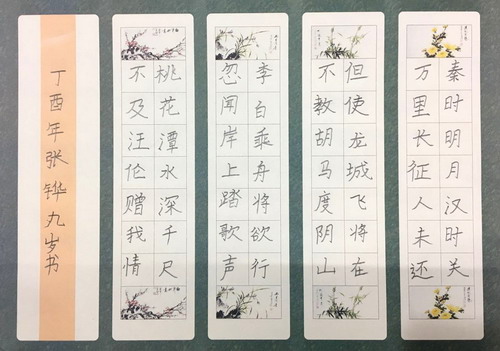 秦时明月汉时关
万里长征人未还
但使龙城飞将在
不教胡马度阴山
李白乘舟将欲行
忽闻岸上踏歌声
桃花潭水深千尺
不及汪伦赠我情
丁酉年张铧九岁书